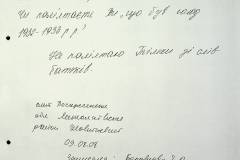 Чи пам'ятаєте Ви, що був голод
1932-1933 р.р?
Не пам'ятаю. Тільки зі слів
батьків.
смт Воскресенське
обл Миколаївська
район Жовтневий
09.08.08
Записала: